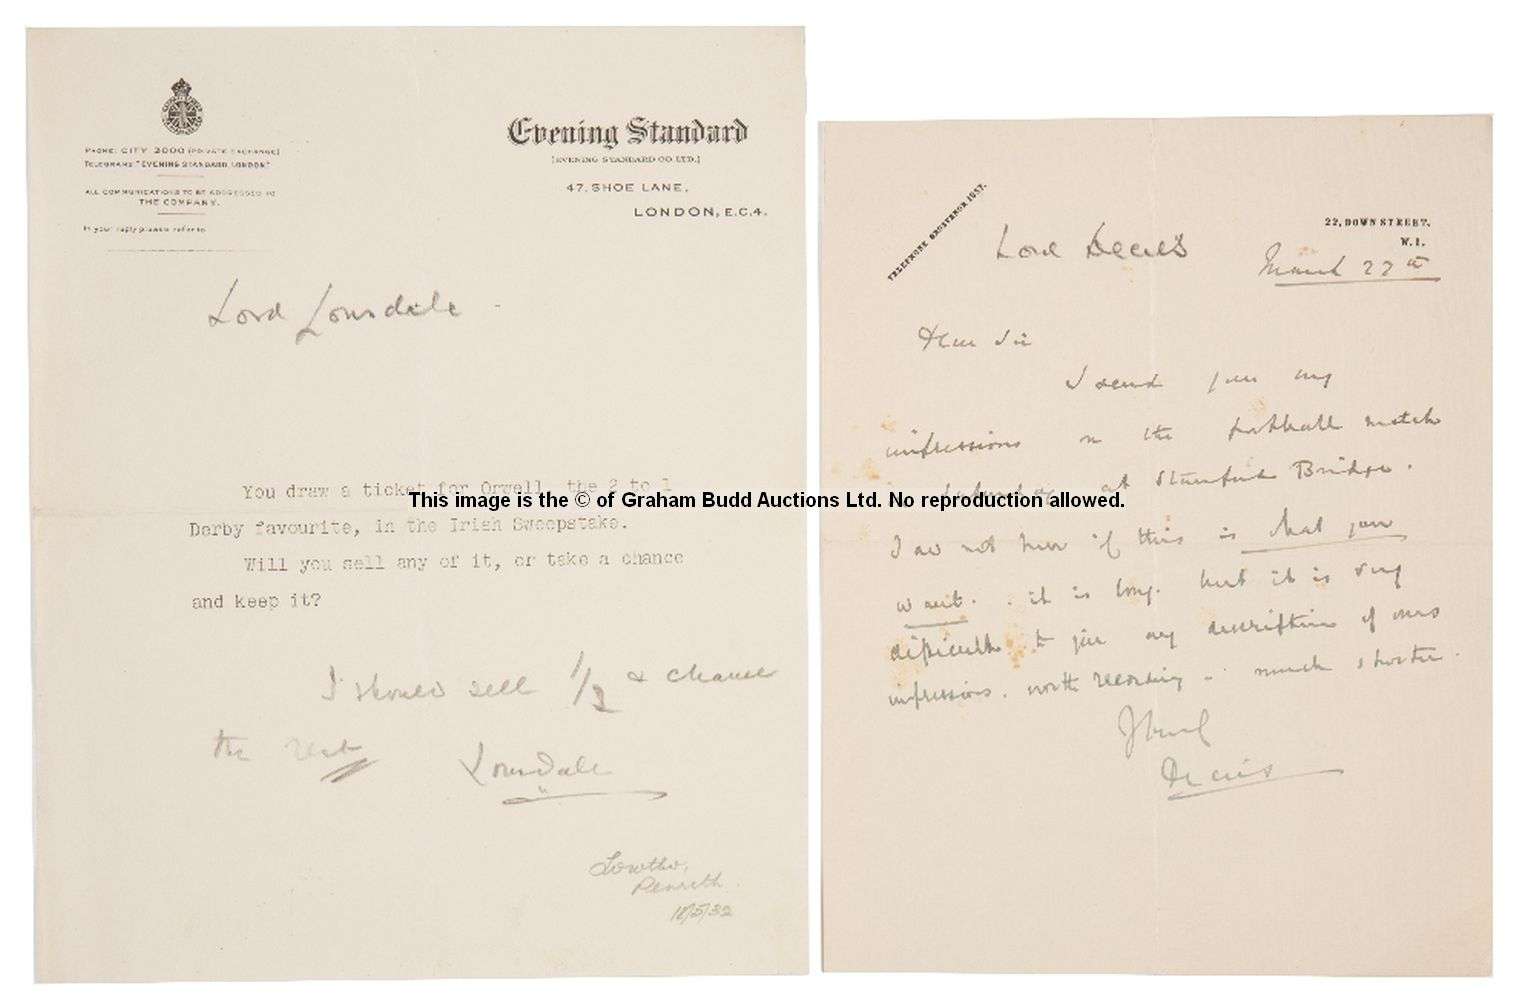 PHONE: CITY 3000 (PRIVATE EXCHANGE)
TELEGRAMS "EVENING STANDARD, LONDON."
ALL COMMUNICATIONS TO BE ADDRESSED TO
THE COMPANY.
In your reply please refer to
Evening Standard
(EVENING STANDARD CO. LTD.)
47, SHOE LANE,
LONDON, E.C.4.
Lord Lonsdale
You draw a ticket for Orwell, the 2 to 1
Derby favourite, in the Irish Sweepstake.
Will you sell any of it, or take a chance
and keep it?
I should sell 1/2 & chance
the rest
Lonsdale
Lowther,
Penrith.
18/5/32
TELEPHONE GROSVENOR 1057.
22, DOWN STREET,
W.1.
Lord Decies
March 27th
Dear Sir
I send you my
impressions on the football match
Saturday at Stamford Bridge.
I do not know if this is what you
want. it is long. but it is very
difficult to give any description of ones
impressions. worth recording - much shorter.
Decies
This image is the © of Graham Budd Auctions Ltd. No reproduction allowed.